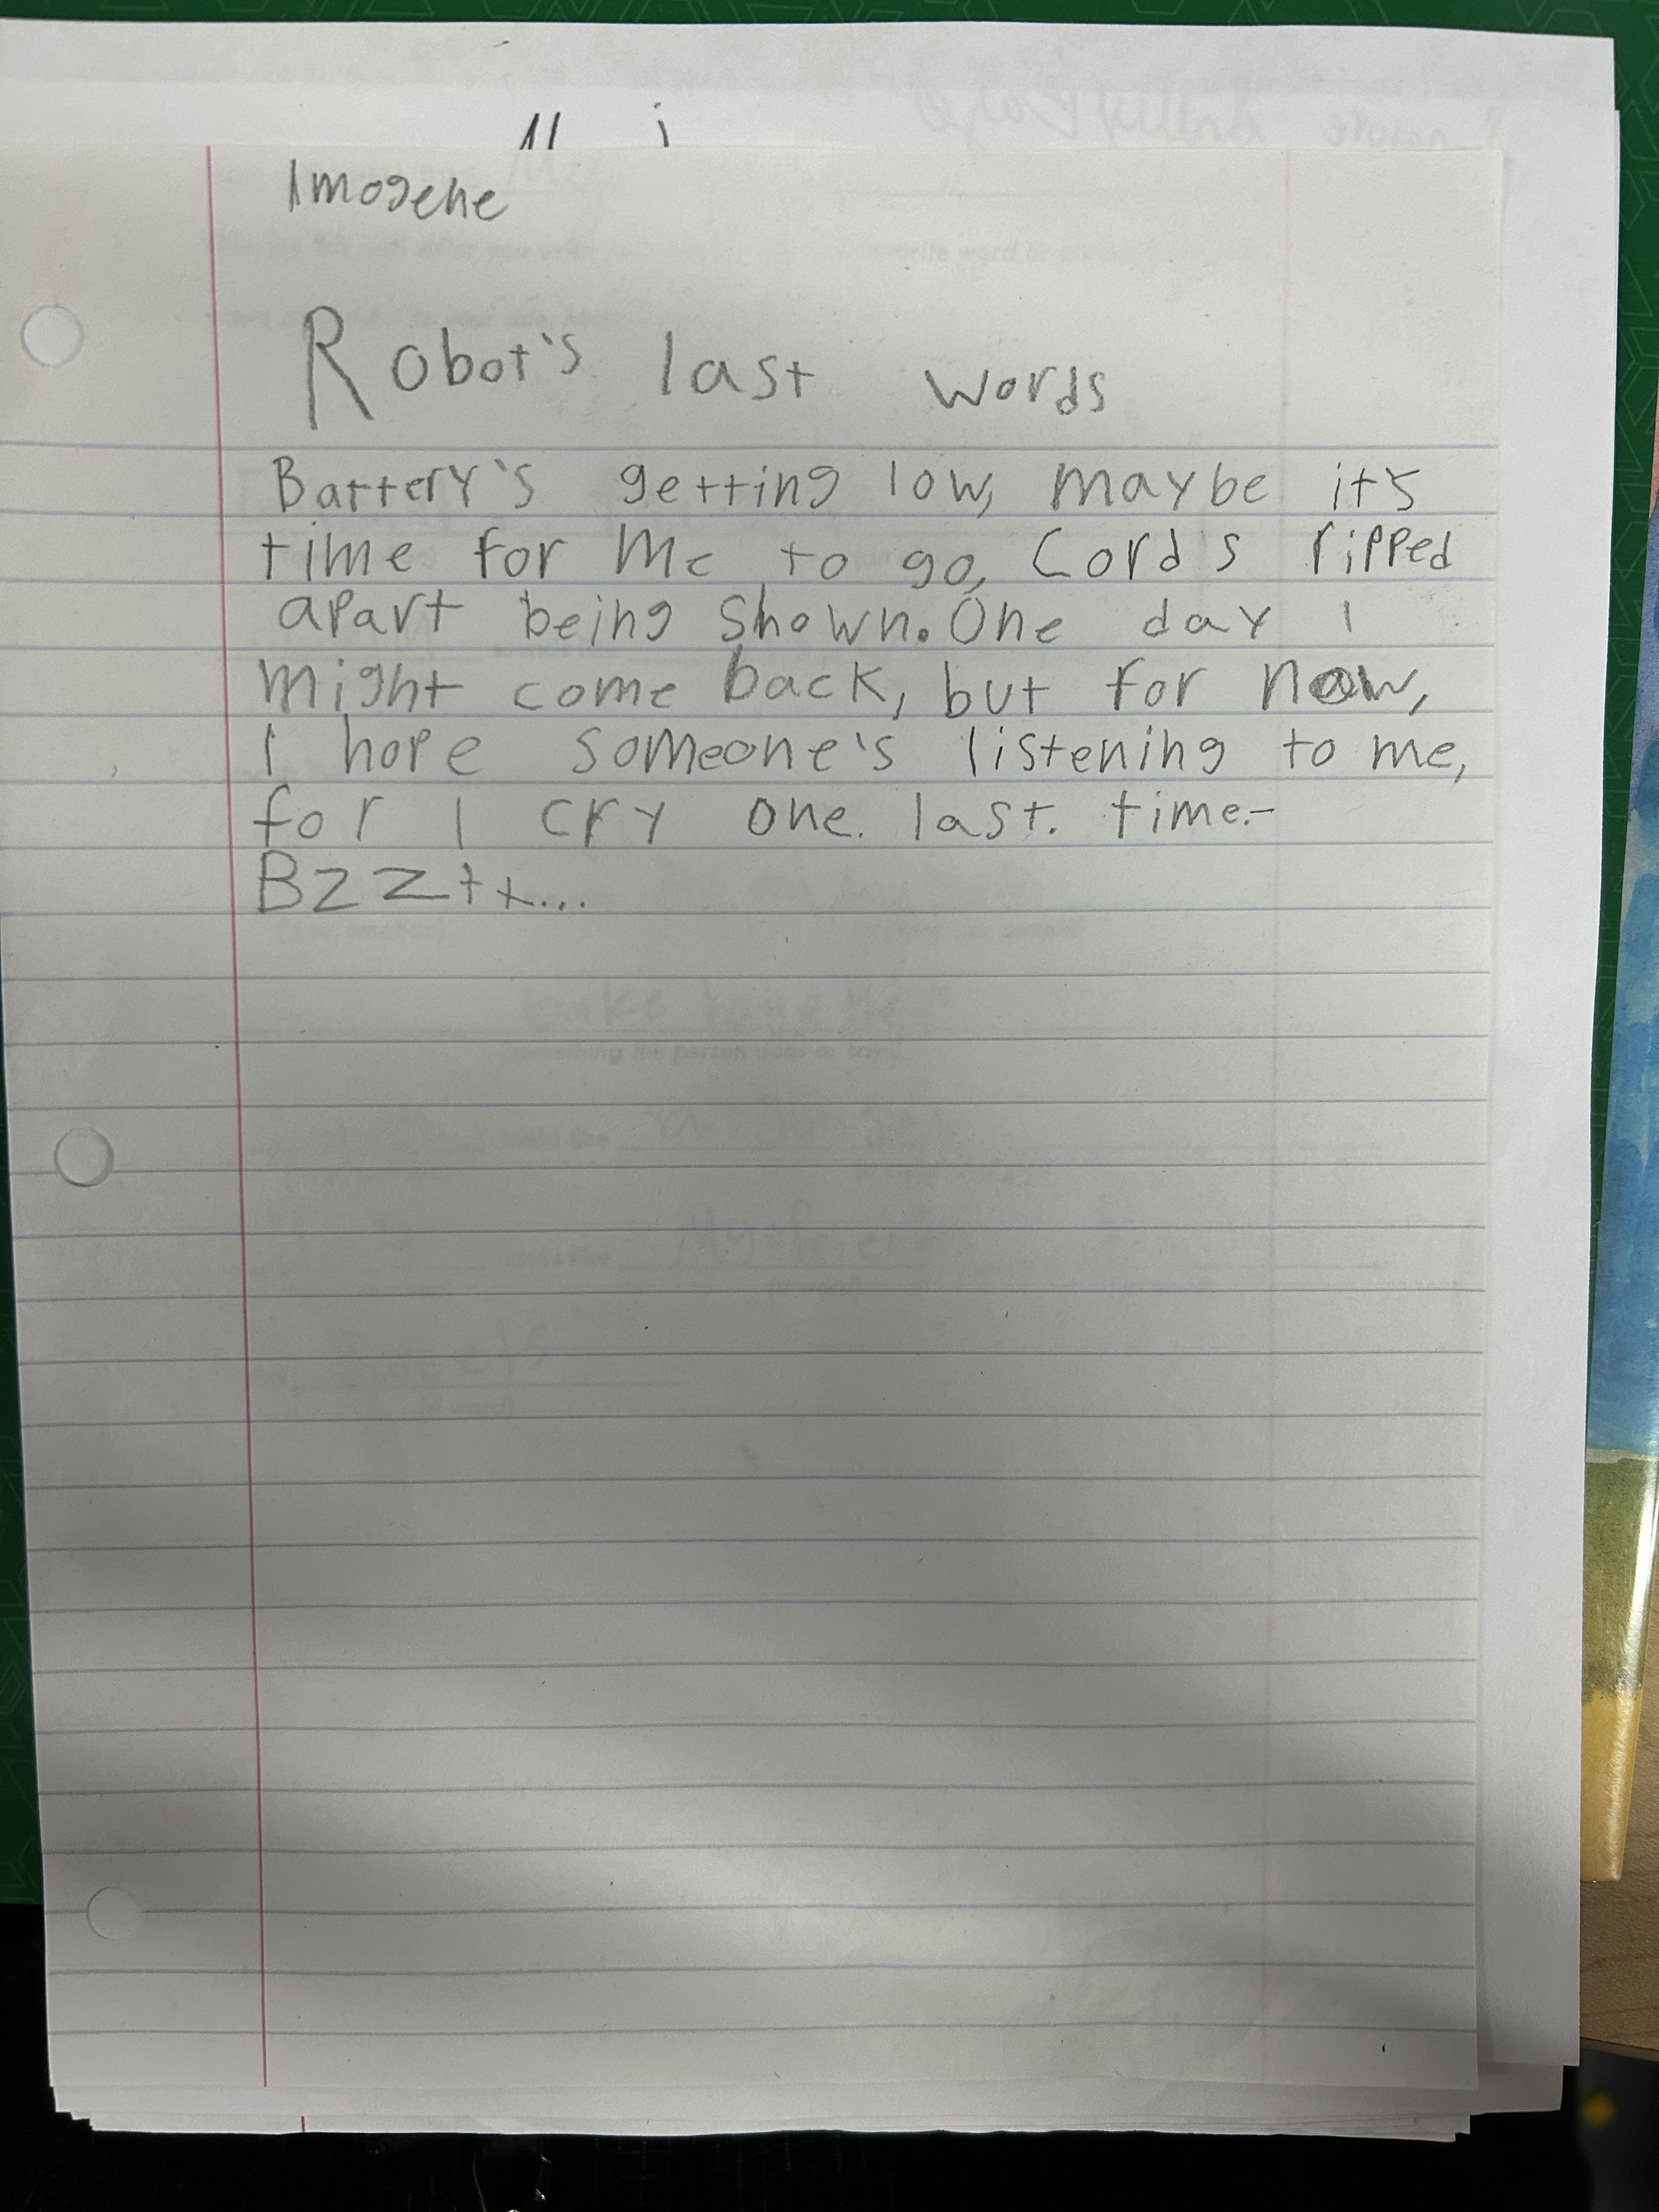 Imogene
Robot's last words
Battery's getting low, maybe it's
time for me to go, Cord's ripped
apart being shown. One day I
might come back, but for now,
I hope someone's listening to me,
for I cry one. last. time.-
Bzztt...